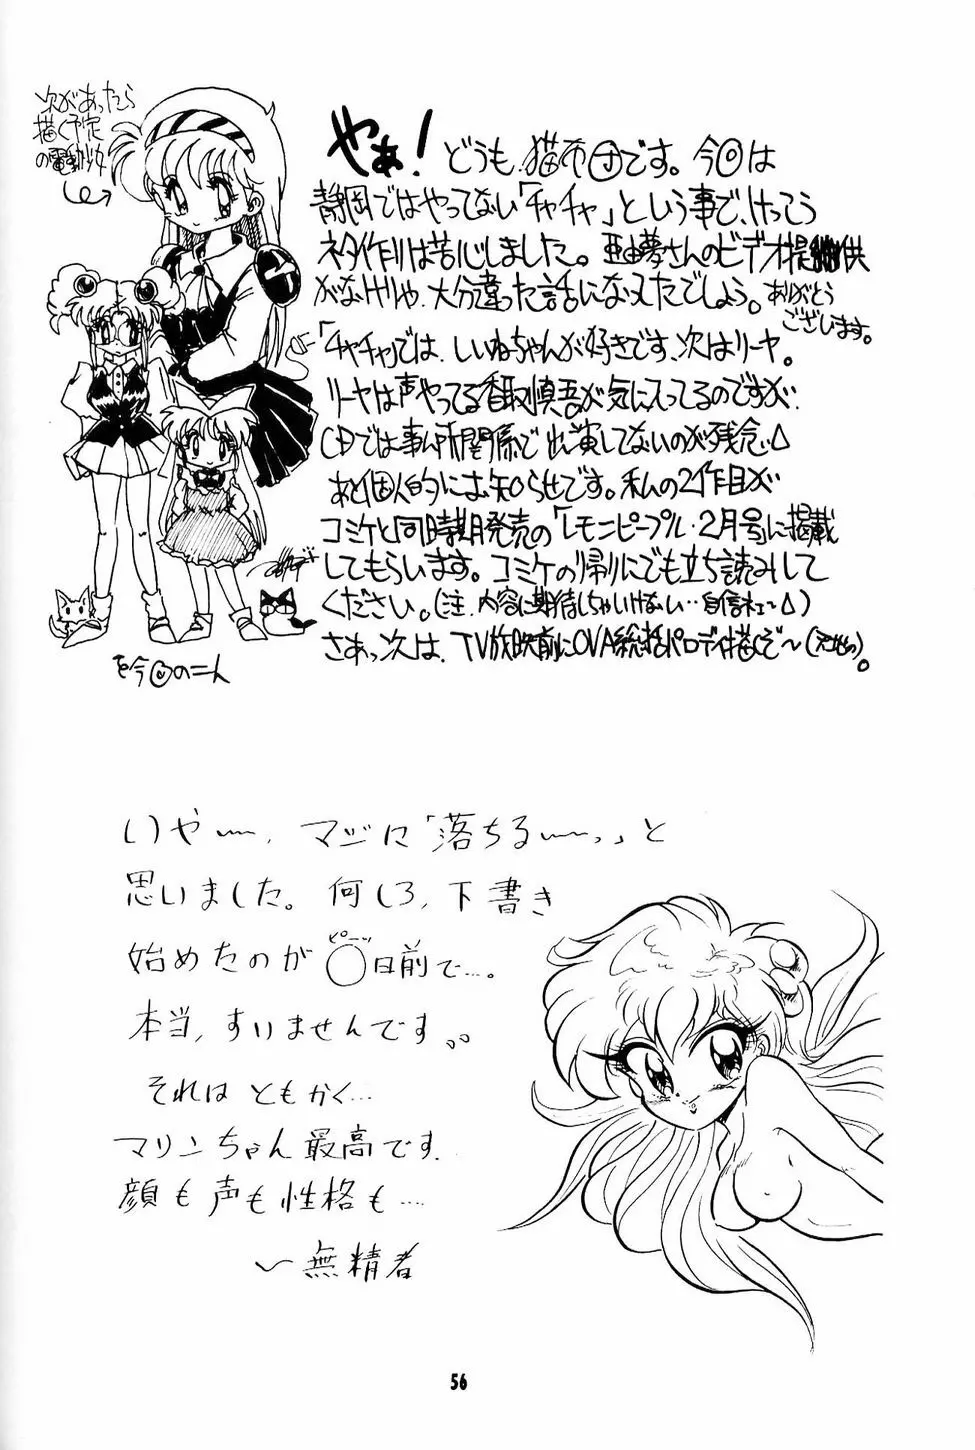 次があったら
描く予定
の電動少女
やぁ!どうも、猫布団です。今回は
静岡ではやってない「チャチャ」という事で、けっこう
ネタ作りは苦心しました。亜由夢さんのビデオ提供
がなけりゃ、大分違った話になってたでしょう。ありがとう
ございます。
「チャチャ」では、しいねちゃんが好きです、次はリーヤ。
リーヤは声やってる香取慎吾が気に入ってるのですが、
CDでは事ム所関係で出演してないのが残念。
あと個人的にお知らせです。私の2作目が
コミケと同時期発売の「レモンピープル・2月号」に掲載
してもらいます。コミケの帰りにでも立ち読みして
ください。(注、内容に期待しちゃいけない…自信ネェ~)
さぁっ次は、TV放映前にOVA総括パロディ描くぞ~
を今回のニん
いや〜、マジに「落ちる〜っ」と
思いました。何しろ、下書き
始めたのが○ピーッ日前で…。
本当、すいませんです。。
それはともかく…
マリンちゃん最高です.
顔も声も性格も…
〜無精者
56